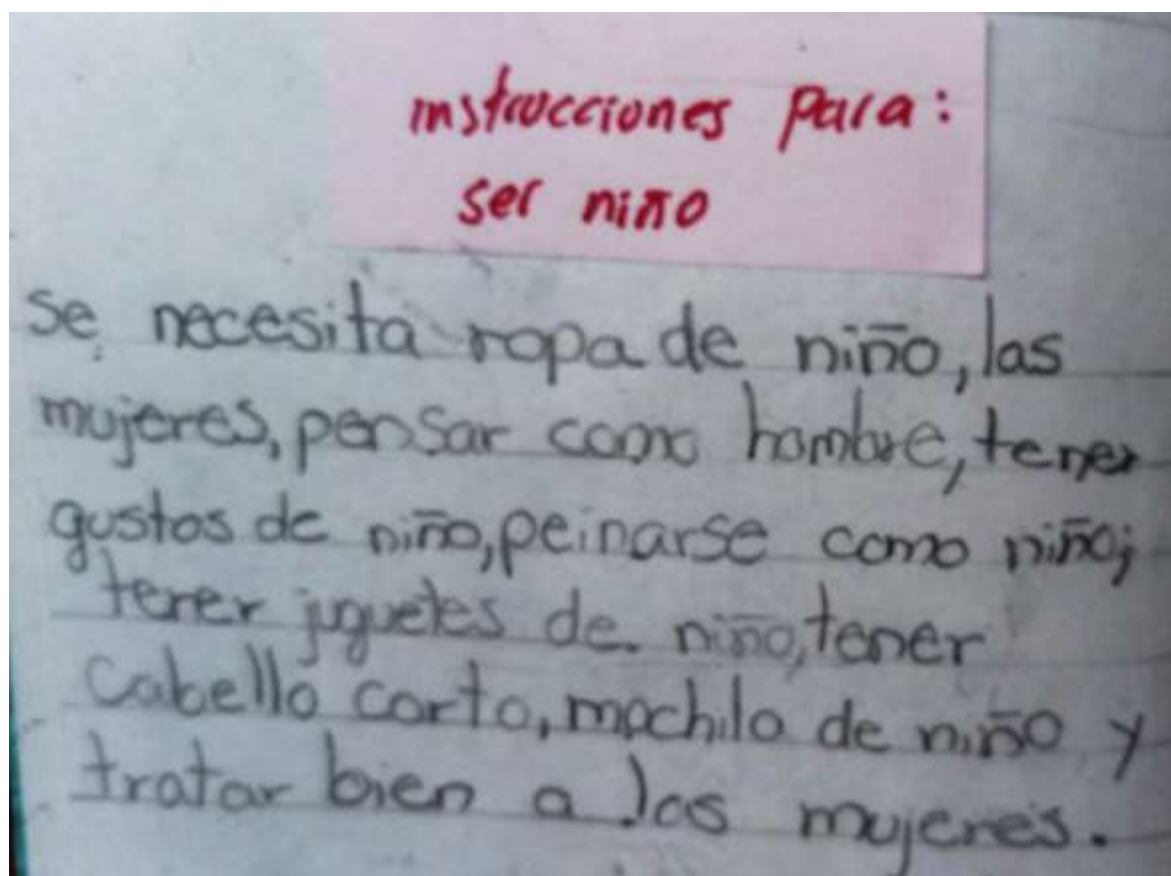 instrucciones para:
ser niño
se necesita ropa de niño, las
mujeres, pensar como hombre, tener
gustos de niño, peinarse como niño,
tener juguetes de niño, tener
cabello corto, mochila de niño y
tratar bien a las mujeres.